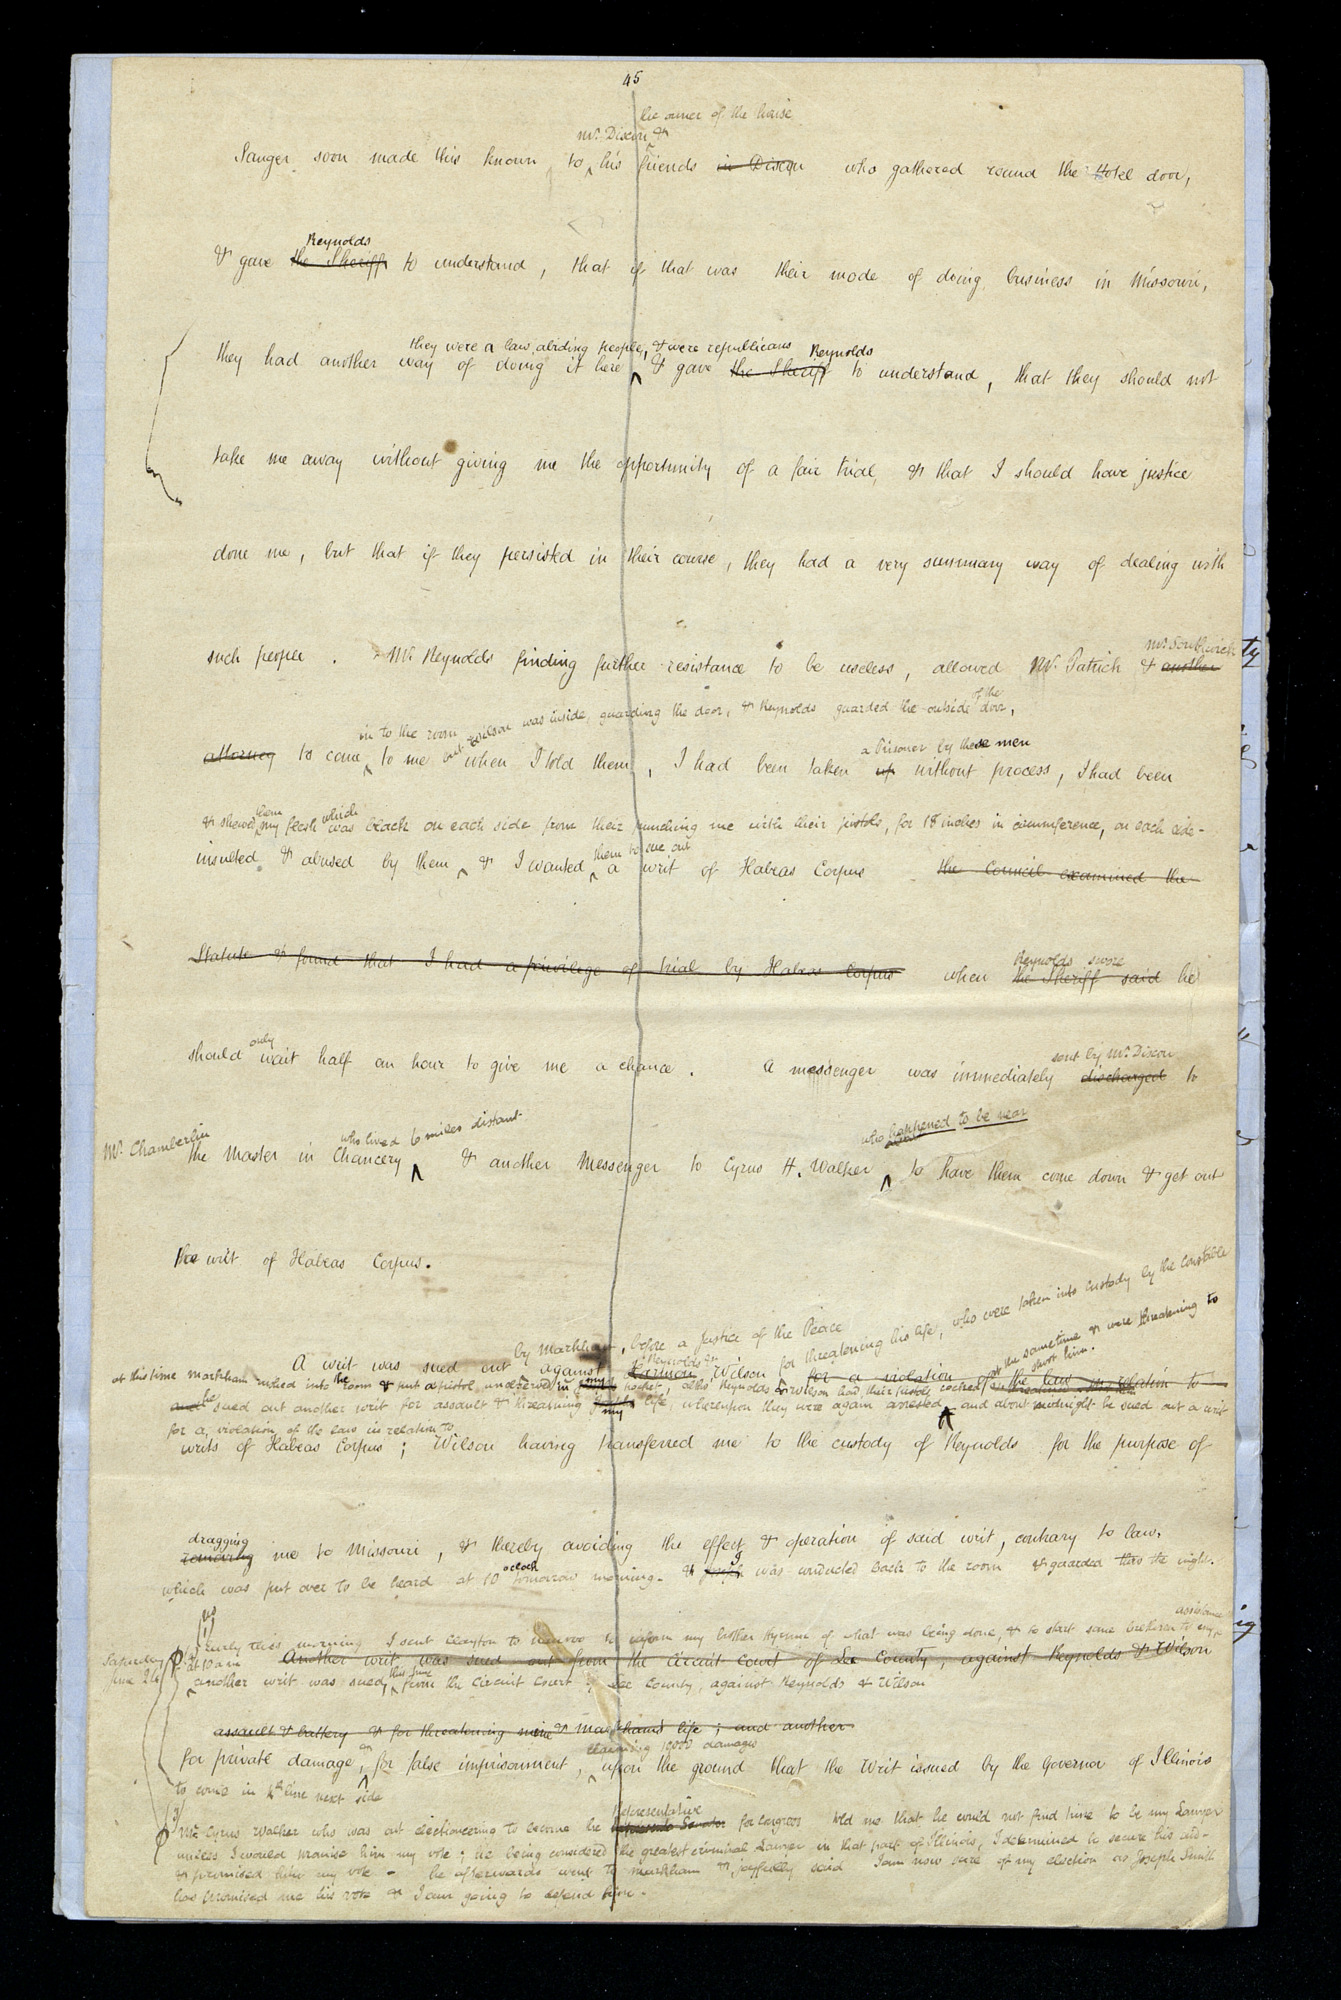 45
the owner of the house
Mr. Dixon &
Sanger soon made this known to his friends in Dixon who gathered round the Hotel door,
Reynolds
& gave the Sheriff to understand, that if that was their mode of doing business in Missouri,
they were a law abiding people, & were republicans Reynolds
they had another way of doing it here & gave the Sheriff to understand, that they should not
take me away without giving me the opportunity of a fair trial, & that I should have justice
done me, but that if they persisted in their course, they had a very summary way of dealing with
Mr. Southwick
such people. Mr. Reynolds finding further resistance to be useless, allowed Mr. Patrick & another
in to the room but Wilson was inside, guarding the door, & Reynolds guarded the outside of the door,
a Prisoner by these men
attorney to come to me when I told them, I had been taken up without process, I had been
& shewed them my flesh which was black on each side from their punching me with their pistols, for 18 inches in circumference, on each side-
them to sue out
insulted & abused by them & I wanted a writ of Habeas Corpus the Council examined the
Reynolds swore
Statute & found that I had a privilege of trial by Habeas Corpus when the Sheriff said he
only
should wait half an hour to give me a chance. A messenger was immediately discharged to
sent by Mr. Dixon
Mr. Chamberlin who lived 6 miles distant who happened to be near
the Master in Chancery & another Messenger to Cyrus H. Walker to have them come down & get out
the writ of Habeas Corpus.
by Markham, before a Justice of the Peace for threatening his life, who were taken into custody by the Constable
A writ was sued out against Harmon Reynolds & Wilson for a violation of the law in relation to
at this time Markham rushed into the room & put a pistol unobserved in my pocket, altho' Reynolds & Wilson had their pistols cocked at the same time & were threatening to shoot him.
and he sued out another writ for assault & threatening my life, whereupon they were again arrested and about midnight he sued out a writ
for a violation of the law in relation to
writs of Habeas Corpus; Wilson having transferred me to the custody of Reynolds for the purpose of
dragging
removing me to Missouri, & thereby avoiding the effect & operation of said writ, contrary to law.
which was put over to be heard at 10 oclock tomorrow morning. & I was conducted back to the room & guarded thro the night.
early this morning I sent Clayton to Nauvoo to inform my brother Hyrum of what was being done, & to start some brethren to my assistance
Saturday June 24
at 10 a m Another writ was sued out from the Circuit Court of Lee County, against Reynolds & Wilson
another writ was sued, this time from the Circuit Court of Lee County, against Reynolds & Wilson
assault & battery & for threatening mine & Markhams life; and another
claiming 10000 damages
for private damage, & for false imprisonment, upon the ground that the Writ issued by the Governor of Illinois
to come in 4th line next side
representative
(3) Mr Cyrus Walker who was out electioneering to become the Senator for Congress told me that he could not find time to be my Lawyer
unless I would promise him my vote; he being considered the greatest criminal Lawyer in that part of Illinois, I determined to secure his aid-
& promised him my vote - he afterwards went to Markham & joyfully said I am now sure of my election as Joseph Smith
has promised me his vote & I am going to defend him.